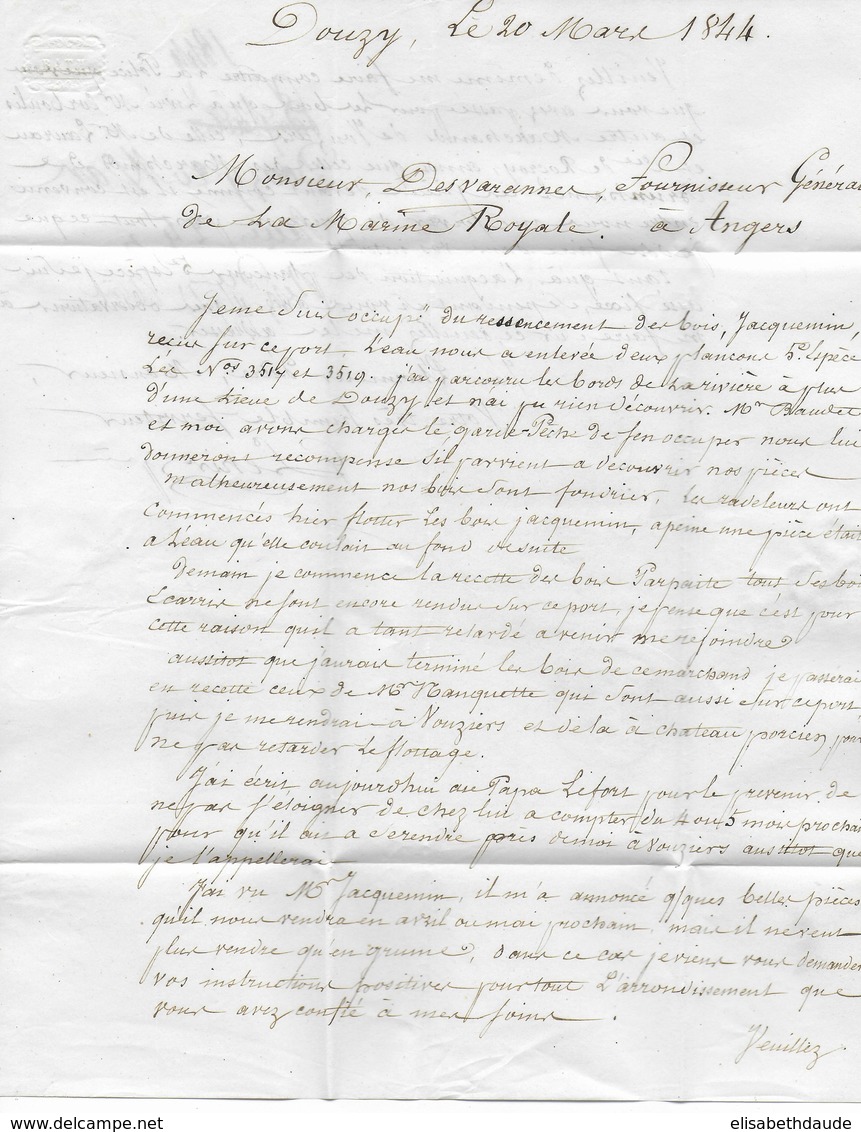 Douzy, Le 20 Mars 1844.
Monsieur, Desvarannes, Fournisseur Généra
de La Marine Royale. à Angers
Jeme Suis occupé du ressencement des bois, Jacquemin,
recus sur ceport, L'eau nous a enlevée deux plancons 5e Espèce
Les Nos 3517 et 3519. j'ai parcouru les bords de Larivière à plus
d'une Lieue de Douzy et n'ai pu rien découvrir. Mr Baudet
et moi avons chargés le garde-Pêche de s'en occuper nous lui
donnerons récompense sil parvient a découvrir nos pièces
Malheureusement nos bois Sont fondrier, les raveleurs ont
Commencés hier flotter Les bois jacquemin, apeine une pièce était
a L'eau qu'elle couloit au fond desuite
Demain je commence la recette des bois Parpaite tout Ses boi
Ecarris ne sont encore rendus Sur ceport, je pense que c'est pour
cette raison quil a tant retardé a venir me rejoindre
aussitot que j'aurais terminé les bois de cemarchand je passerai
en recette ceux de Mr Hanquette qui Sont aussi Sur ceport
puis je merendrai à Vouziers et dela à chateau porcien pour
ne pas retarder Le flottage.
J'ai écrit aujourdhui au Papa Lefort pour le prevenir de
ne pas S'eloigner de chez lui a compter du 4 ou 5 mois prochai
pour qu'il ait a Serendre près demoi à Vouziers aussitot que
je l'appellerai
J'ai vu Mr Jacquemin, il m'a annoncé q/ques belles pièces
qu'il nous vendra en avril ou mai prochain, mais il ne veut
plus vendre qu'en grume, dans ce cas je viens vous demander
vos instructions positives pour tout L'arrondissement que
vous avez confié à mes soins.
Veuillez
elisabethdaude